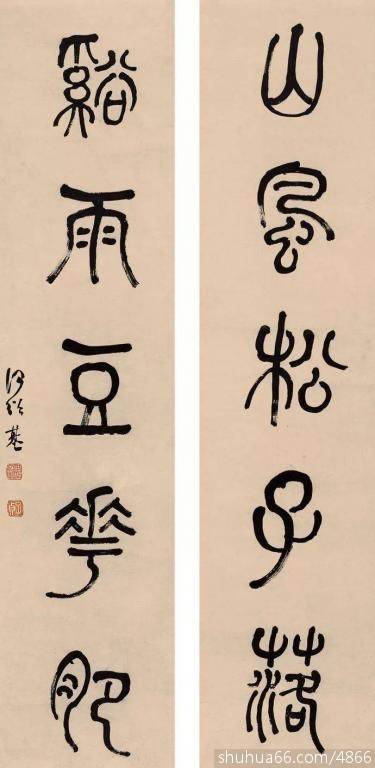 山風松子落
谿雨豆華肥
何紹基
shuhua66.com/4866